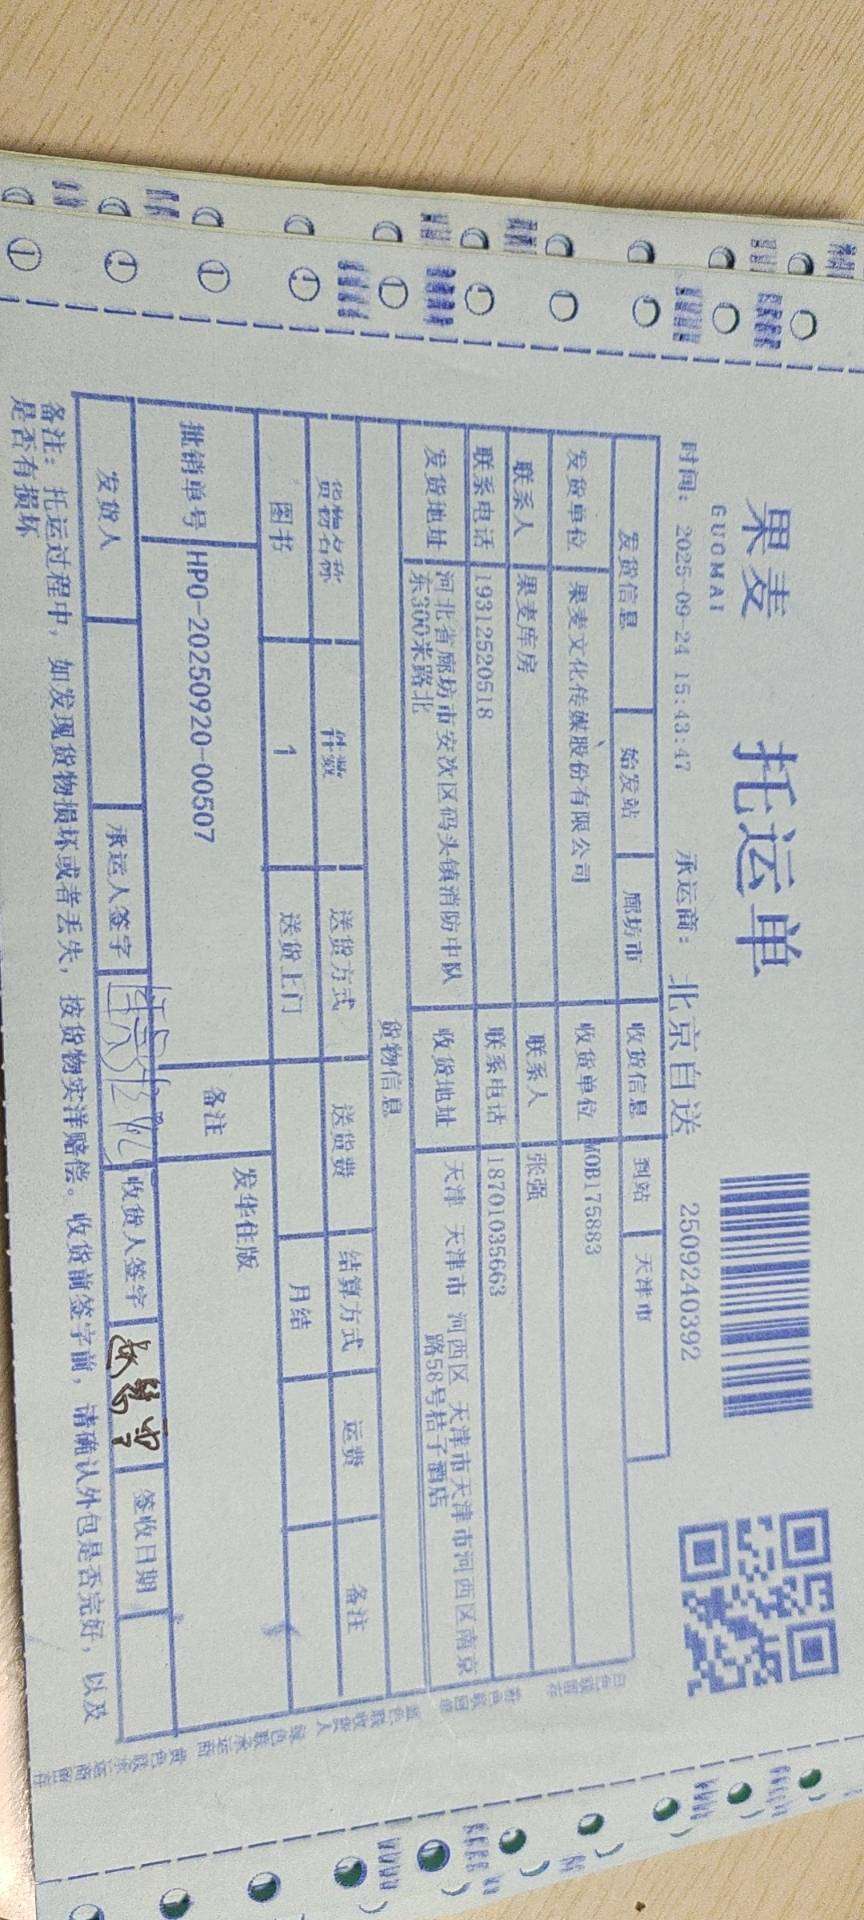 果麦
GUOMAI
托运单
时间: 2025-09-24 15:43:47 承运商: 北京自送 2509240392
发货信息 始发站 廊坊市 收货信息 到站 天津市
发货单位 果麦文化传媒股份有限公司 收货单位 MOB175883
联系人 果麦库房 联系人 张强
联系电话 19312520518 联系电话 18701035663
发货地址 河北省廊坊市安次区码头镇消防中队 收货地址 天津 天津市 河西区 天津市天津市河西区南京
东300米路北 路58号桔子酒店
货物信息
货物名称 件数 送货方式 送货费 结算方式 运费 备注
图书 1 送货上门 月结
批销单号 HPO-20250920-00507 备注 发华住版
发货人 承运人签字 收货人签字 签收日期
备注: 托运过程中, 如发现货物损坏或者丢失, 按货物实洋赔偿。收货前签字前, 请确认外包是否完好, 以及
是否有损坏